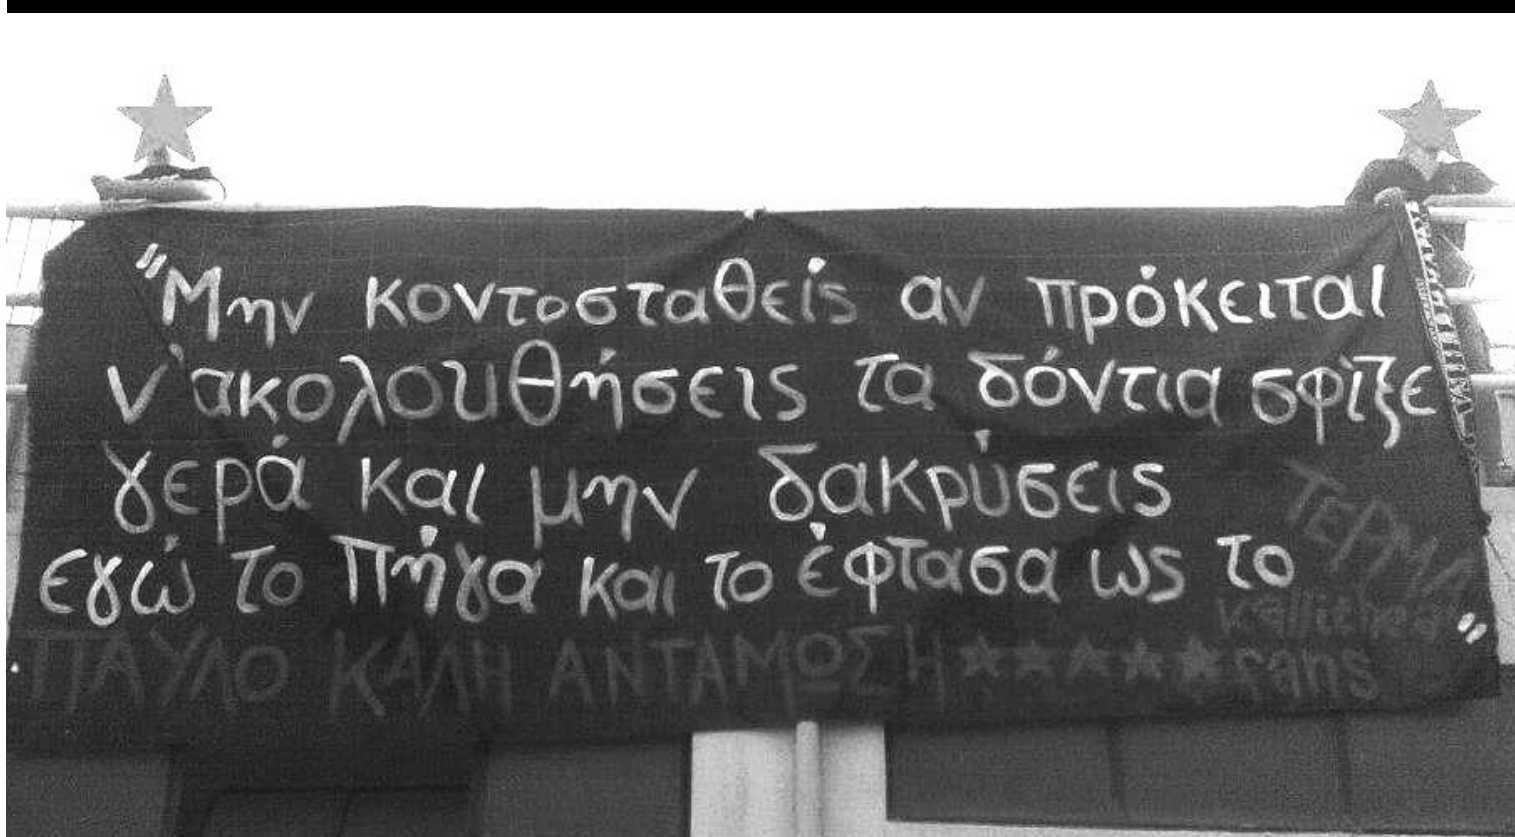 "Μην κοντοσταθείς αν πρόκειται
ν'ακολουθήσεις τα δόντια σφίξε
γερά και μην δακρύσεις
εγώ το πήγα και το έφτασα ως το
ΤΕΡΜΑ"
ΠΑΥΛΟ ΚΑΛΗ ΑΝΤΑΜΩΣΗ ★★★★★
Kallithea
fans